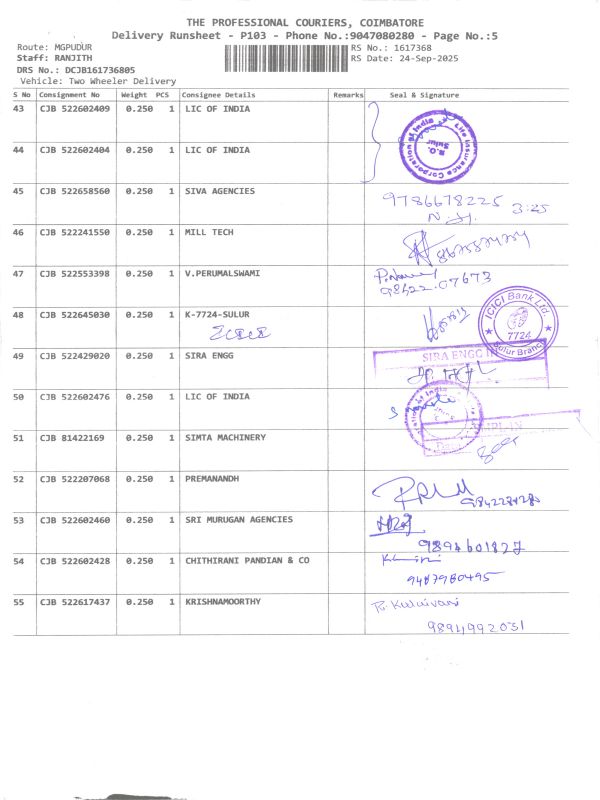 THE PROFESSIONAL COURIERS, COIMBATORE
Delivery Runsheet - P103 - Phone No.:9047080280 - Page No.:5
Route: MGPUDUR RS No.: 1617368
Staff: RANJITH RS Date: 24-Sep-2025
DRS No.: DCJB161736805
Vehicle: Two Wheeler Delivery
S No Consignment No Weight PCS Consignee Details Remarks Seal & Signature
43 CJB 522602409 0.250 1 LIC OF INDIA
Life Insurance Corporation of India
Sulur
44 CJB 522602404 0.250 1 LIC OF INDIA
45 CJB 522658560 0.250 1 SIVA AGENCIES 9786678225 3:25
46 CJB 522241550 0.250 1 MILL TECH
47 CJB 522553398 0.250 1 V.PERUMALSWAMI
98422.07673
48 CJB 522645030 0.250 1 K-7724-SULUR
ICICI Bank Ltd
7724
Sulur Branch
49 CJB 522429020 0.250 1 SIRA ENGG SIRA ENGG
50 CJB 522602476 0.250 1 LIC OF INDIA
51 CJB 81422169 0.250 1 SIMTA MACHINERY
52 CJB 522207068 0.250 1 PREMANANDH
53 CJB 522602460 0.250 1 SRI MURUGAN AGENCIES
9894601827
54 CJB 522602428 0.250 1 CHITHIRANI PANDIAN & CO
9487980495
55 CJB 522617437 0.250 1 KRISHNAMOORTHY R. Kalaivani
9894992031